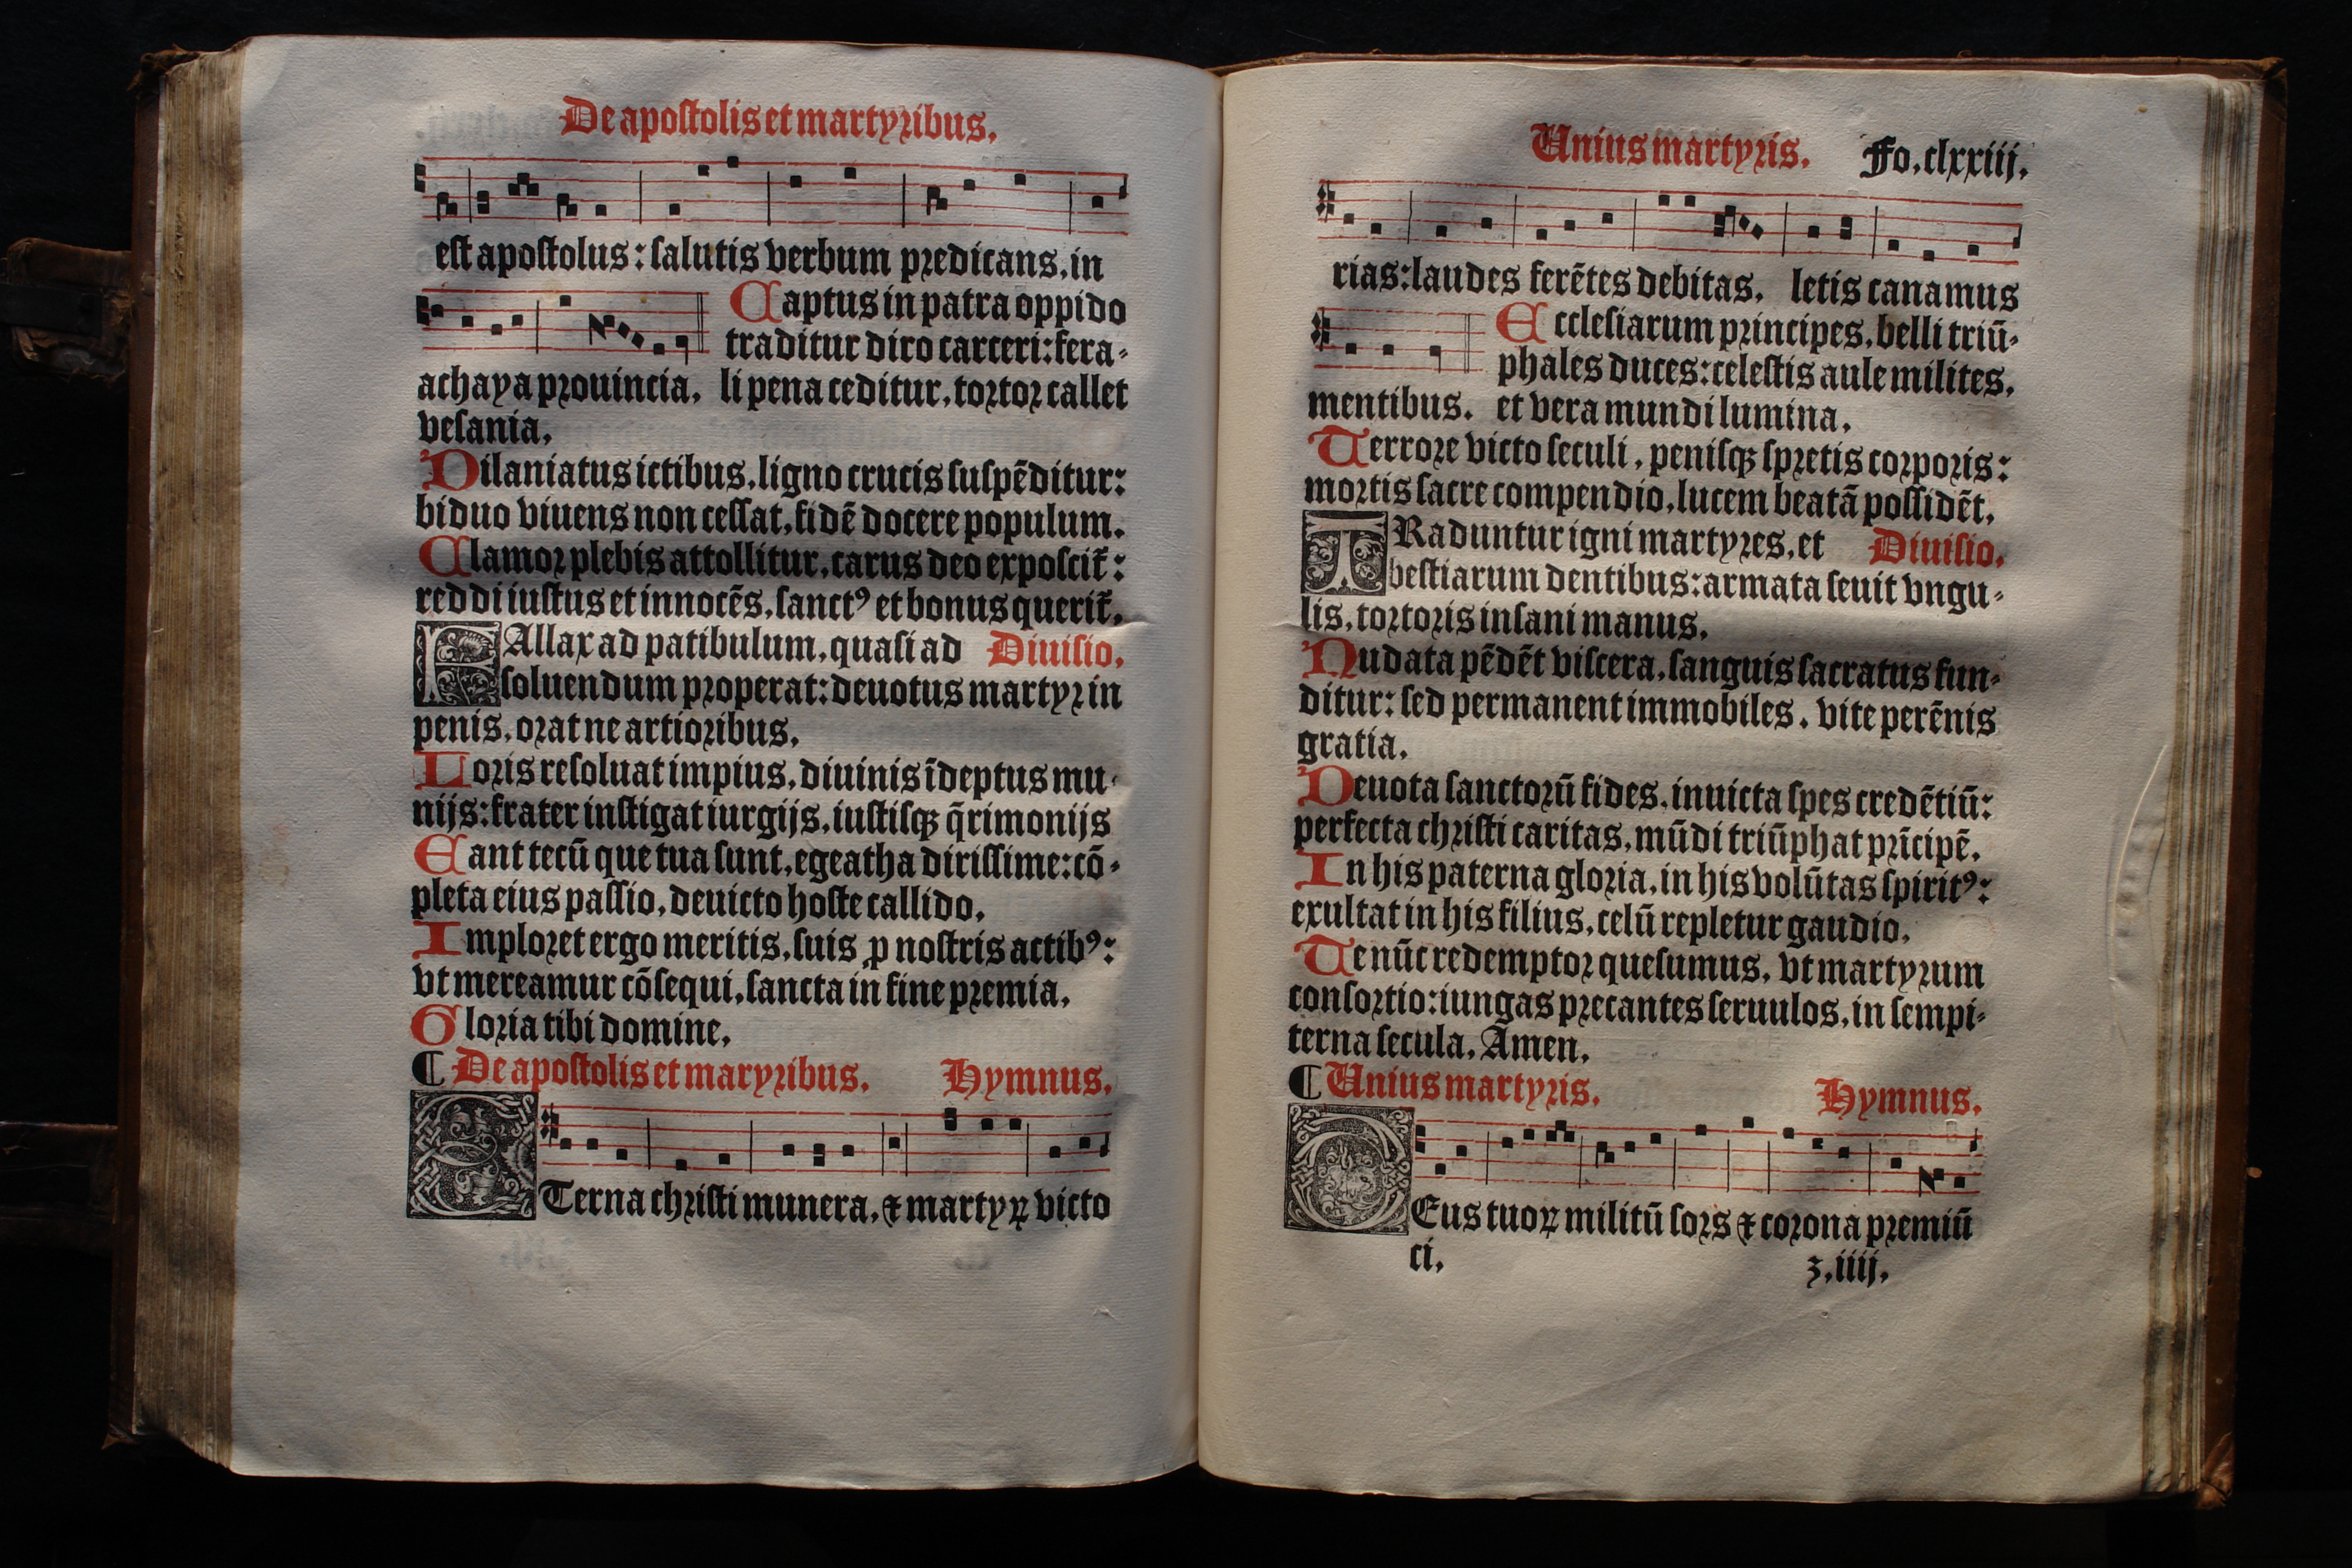 De apostolis et martyribus.
est apostolus: salutis verbum predicans, in
Captus in patra oppido
traditur diro carceri: fera-
achaya prouincia. li pena ceditur, tortor callet
vesania.
Dilaniatus ictibus, ligno crucis suspẽditur:
biduo viuens non cessat, fidẽ docere populum.
Clamor plebis attollitur, carus deo exposcit̃:
reddi iustus et innocẽs, sanctꝰ et bonus querit̃.
FAllax ad patibulum, quasi ad Diuisio.
soluendum properat: deuotus martyr in
penis, orat ne artioribus.
Loris resoluat impius, diuinis ĩdeptus mu-
nijs: frater instigat iurgijs, iustisqꝫ q̃rimonijs
Eant tecũ que tua sunt, egeatha dirissime: cõ-
pleta eius passio, deuicto hoste callido.
Imploret ergo meritis, suis ꝓ nostris actibꝰ:
vt mereamur cõsequi, sancta in fine premia.
Gloria tibi domine.
¶ De apostolis et maryribus. Hymnus.
ETerna christi munera, ⁊ martyꝝ victo
Unius martyris. Fo. clxxiij.
rias: laudes ferẽtes debitas, letis canamus
Ecclesiarum principes, belli triũ-
phales duces: celestis aule milites,
mentibus. et vera mundi lumina.
Terrore victo seculi, penisqꝫ spretis corporis:
mortis sacre compendio, lucem beatã possidẽt.
TRaduntur igni martyres, et Diuisio.
bestiarum dentibus: armata seuit vngu-
lis, tortoris insani manus.
Nudata pẽdẽt viscera, sanguis sacratus fun-
ditur: sed permanent immobiles, vite perẽnis
gratia.
Deuota sanctorũ fides, inuicta spes credẽtiũ:
perfecta christi caritas, mũdi triũphat prĩcipẽ.
In his paterna gloria, in his volũtas spiritꝰ:
exultat in his filius, celũ repletur gaudio.
Te nũc redemptor quesumus, vt martyrum
consortio: iungas precantes seruulos, in sempi-
terna secula. Amen.
¶ Unius martyris. Hymnus.
DEus tuoꝝ militũ sors ⁊ corona premiũ
ci.
z.iiij.